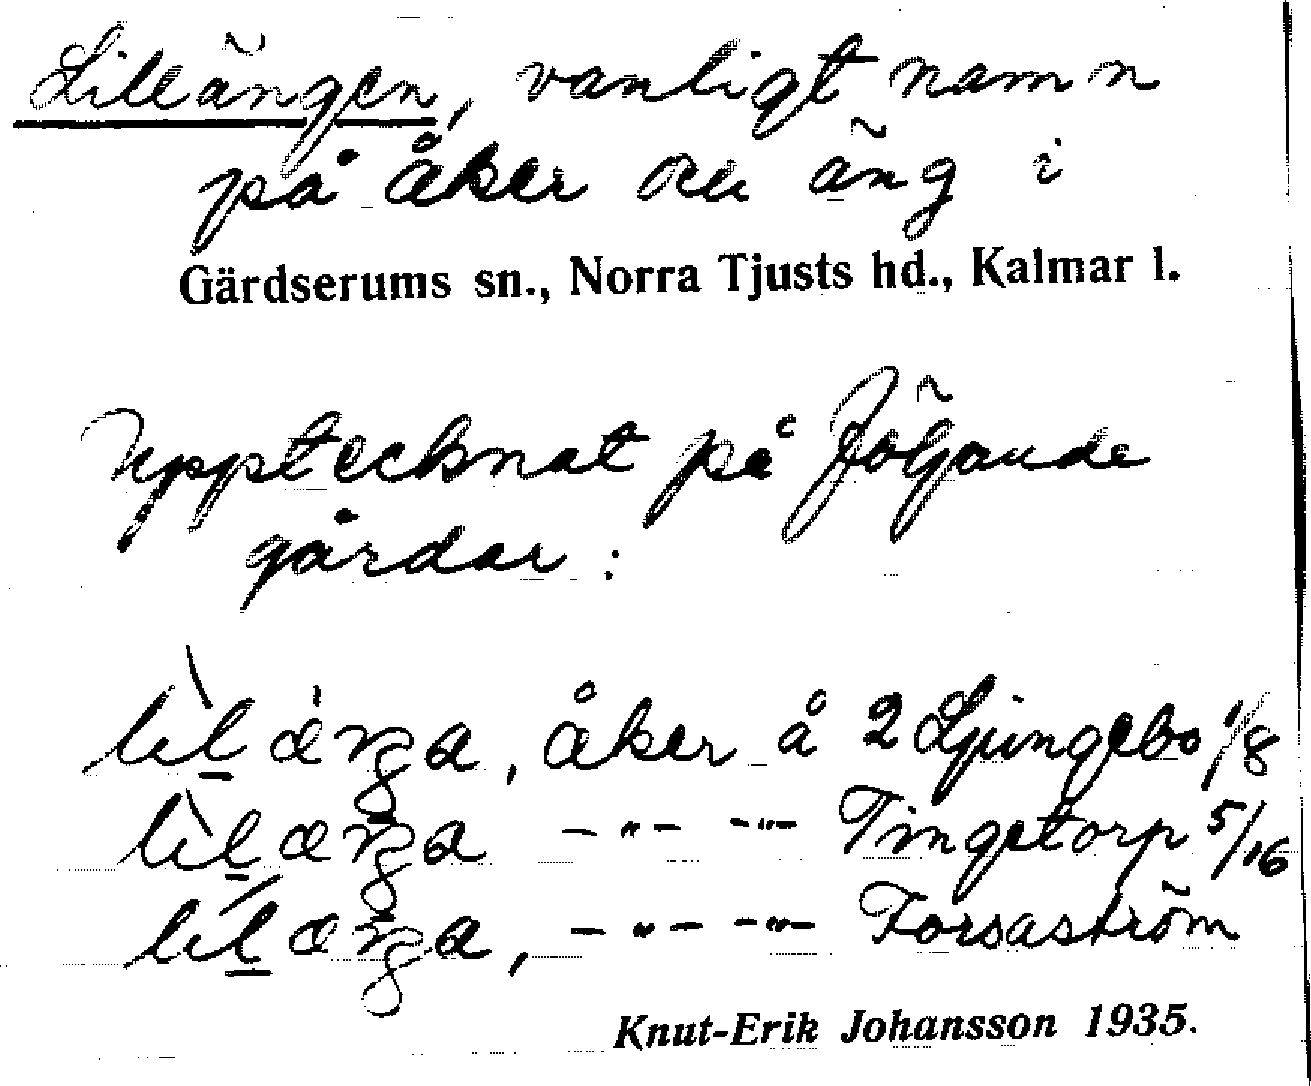 Lillängen, vanligt namn
på åker och äng i
Gärdserums sn., Norra Tjusts hd., Kalmar l.
Upptecknat på följande
gårdar:
, åker å 2 Ljungebo 1/8
–〃– –〃– Tingetorp 5/16
, –〃– –〃– Forsaström
Knut-Erik Johansson 1935.